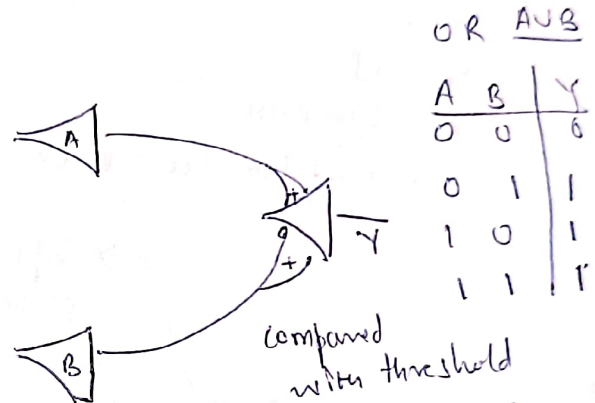 OR AUB
A B Y
0 0 0
0 1 1
1 0 1
1 1 1
A
+
+
Y
B
compared
with threshold